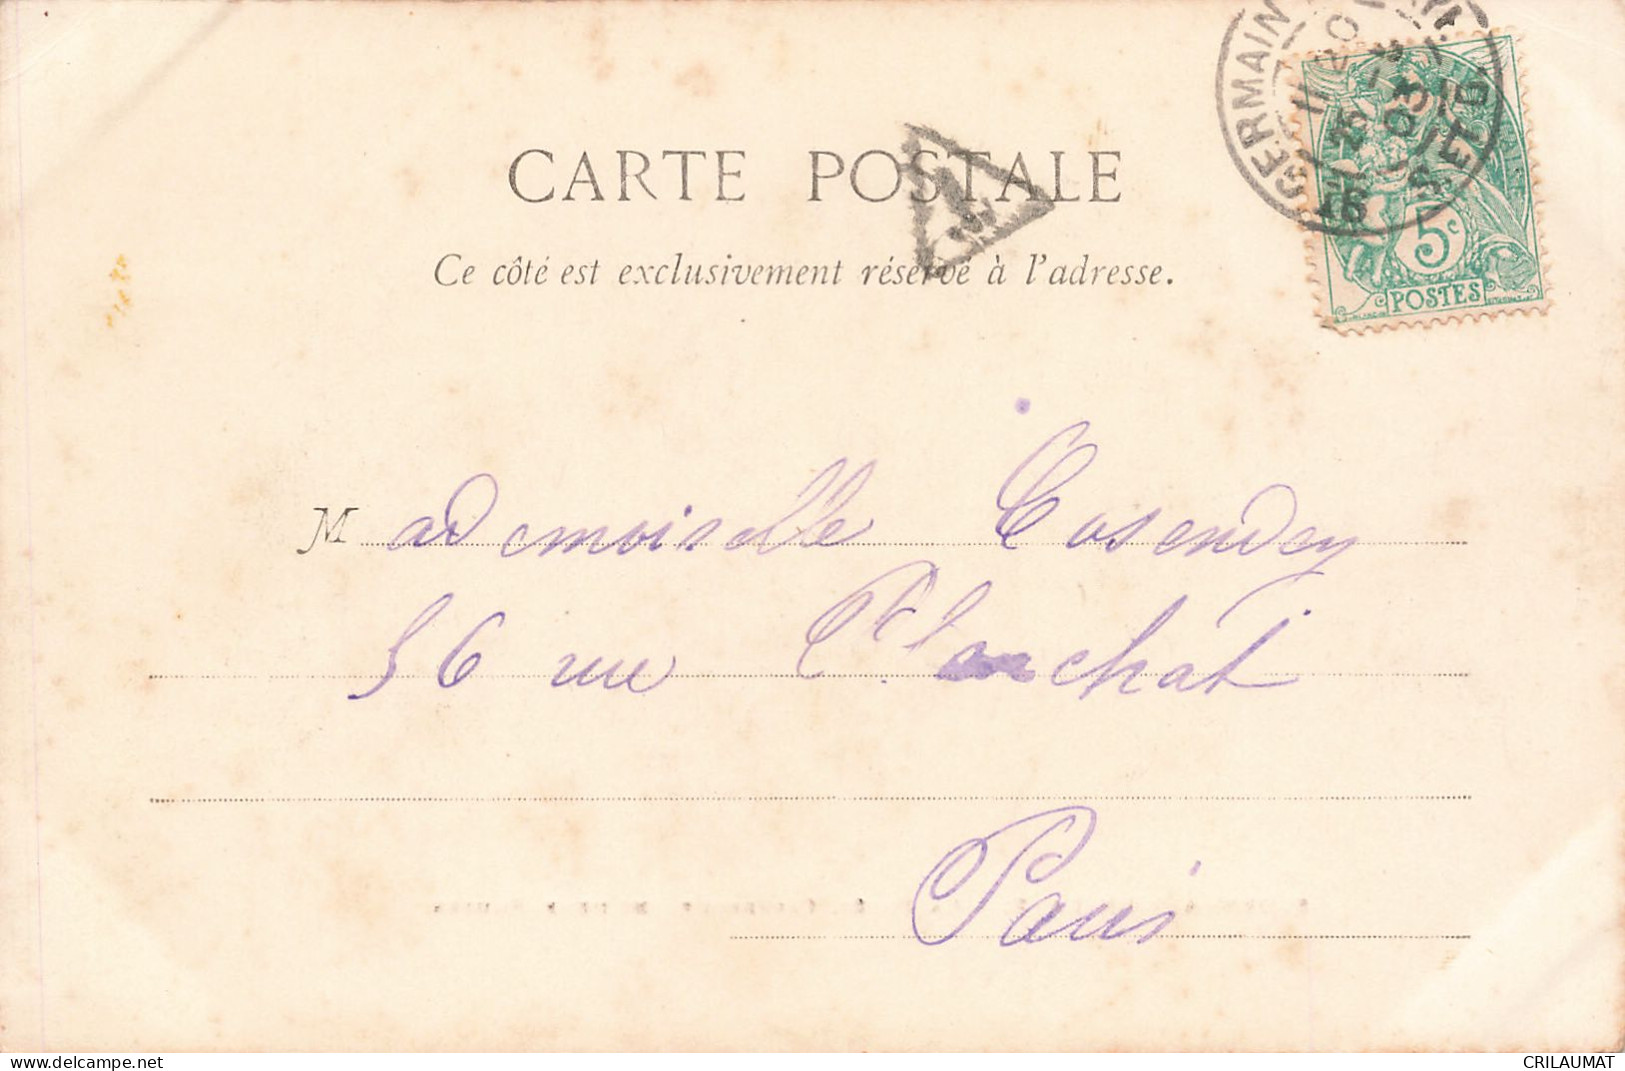 CARTE POSTALE
Ce côté est exclusivement réservé à l'adresse.
GERMAIN
11 20
25 - 3
03
SET O
16
5c
POSTES
Mademoiselle Cosendey
56 rue Planchat
Paris
delcampe.net
CRILAUMAT